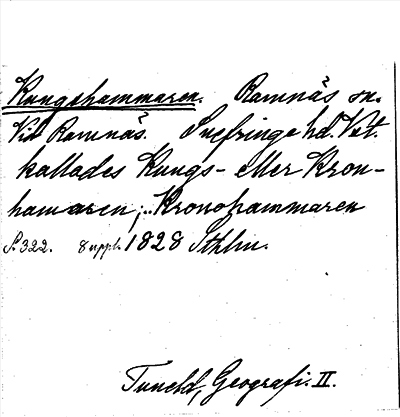 Kungshammaren. Ramnäs sn.
Vid Ramnäs. Snefringe hd. Vstm.
kallades Kungs- eller Kron-
hamaren; "Kronohammaren
S. 322. 8 uppl. 1828 Sthlm.
Tuneld, Geografi. II.